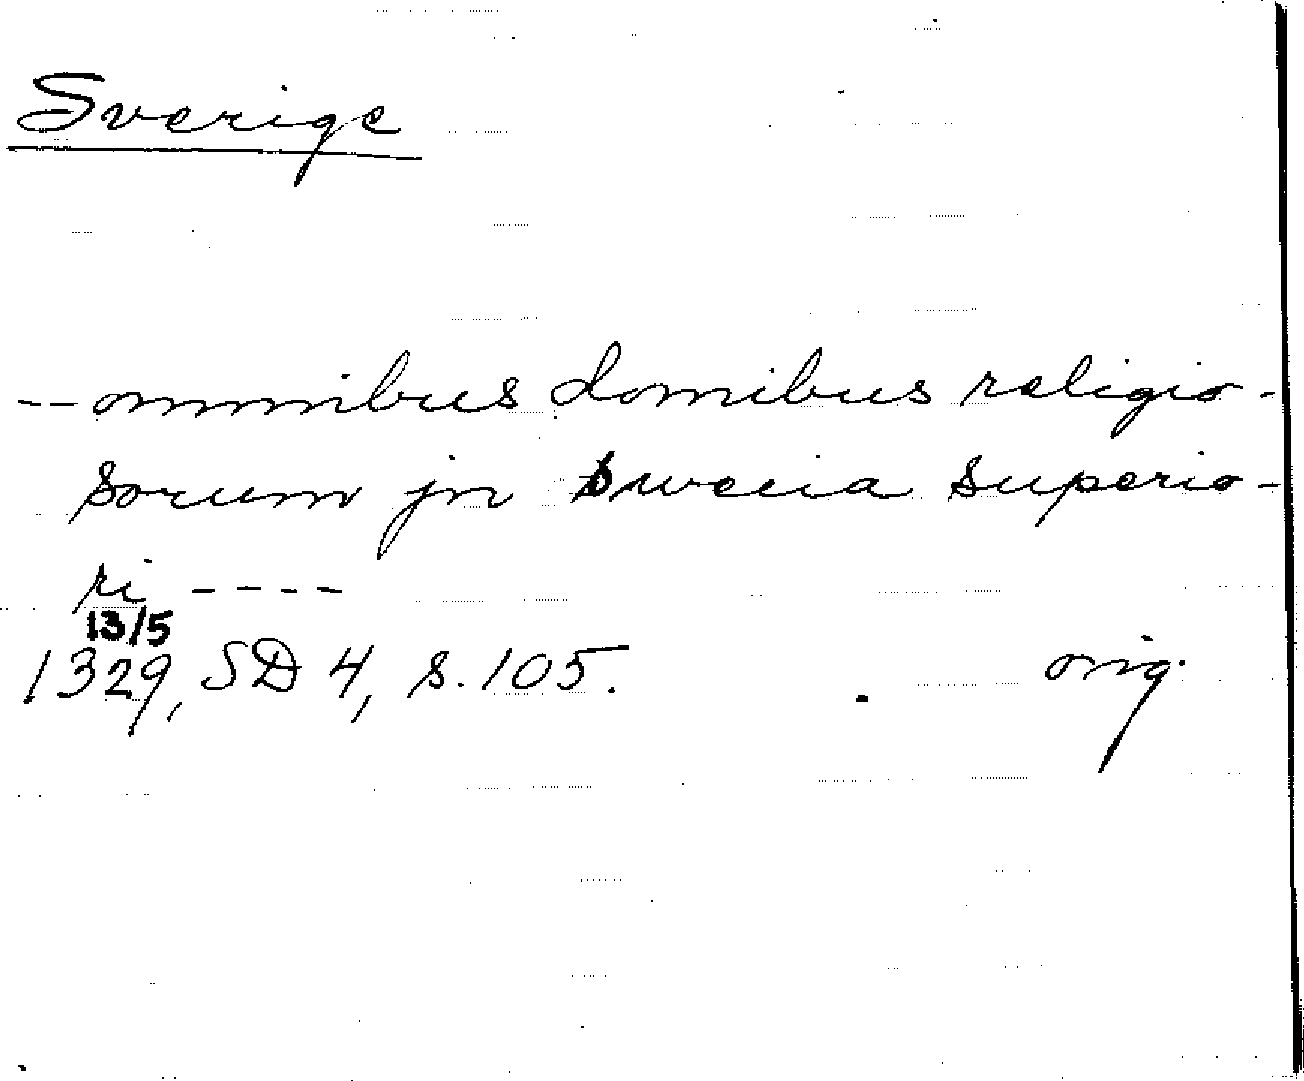 Sverige
-- omnibus domibus religio-
sorum jn swecia superio-
ri ----
13/5
1329, SD 4, s. 105.
orig.